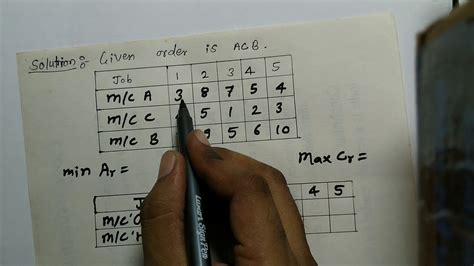 Solution:- Given order is ACB.
Job 1 2 3 4 5
m/c A 3 8 7 5 4
m/c C 5 1 2 3
m/c B 9 5 6 10
min Ar = Max Cr =
J 4 5
m/c'
m/c'